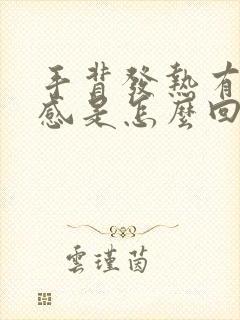 手背發熱有
感是怎麼回
雲瑾茵